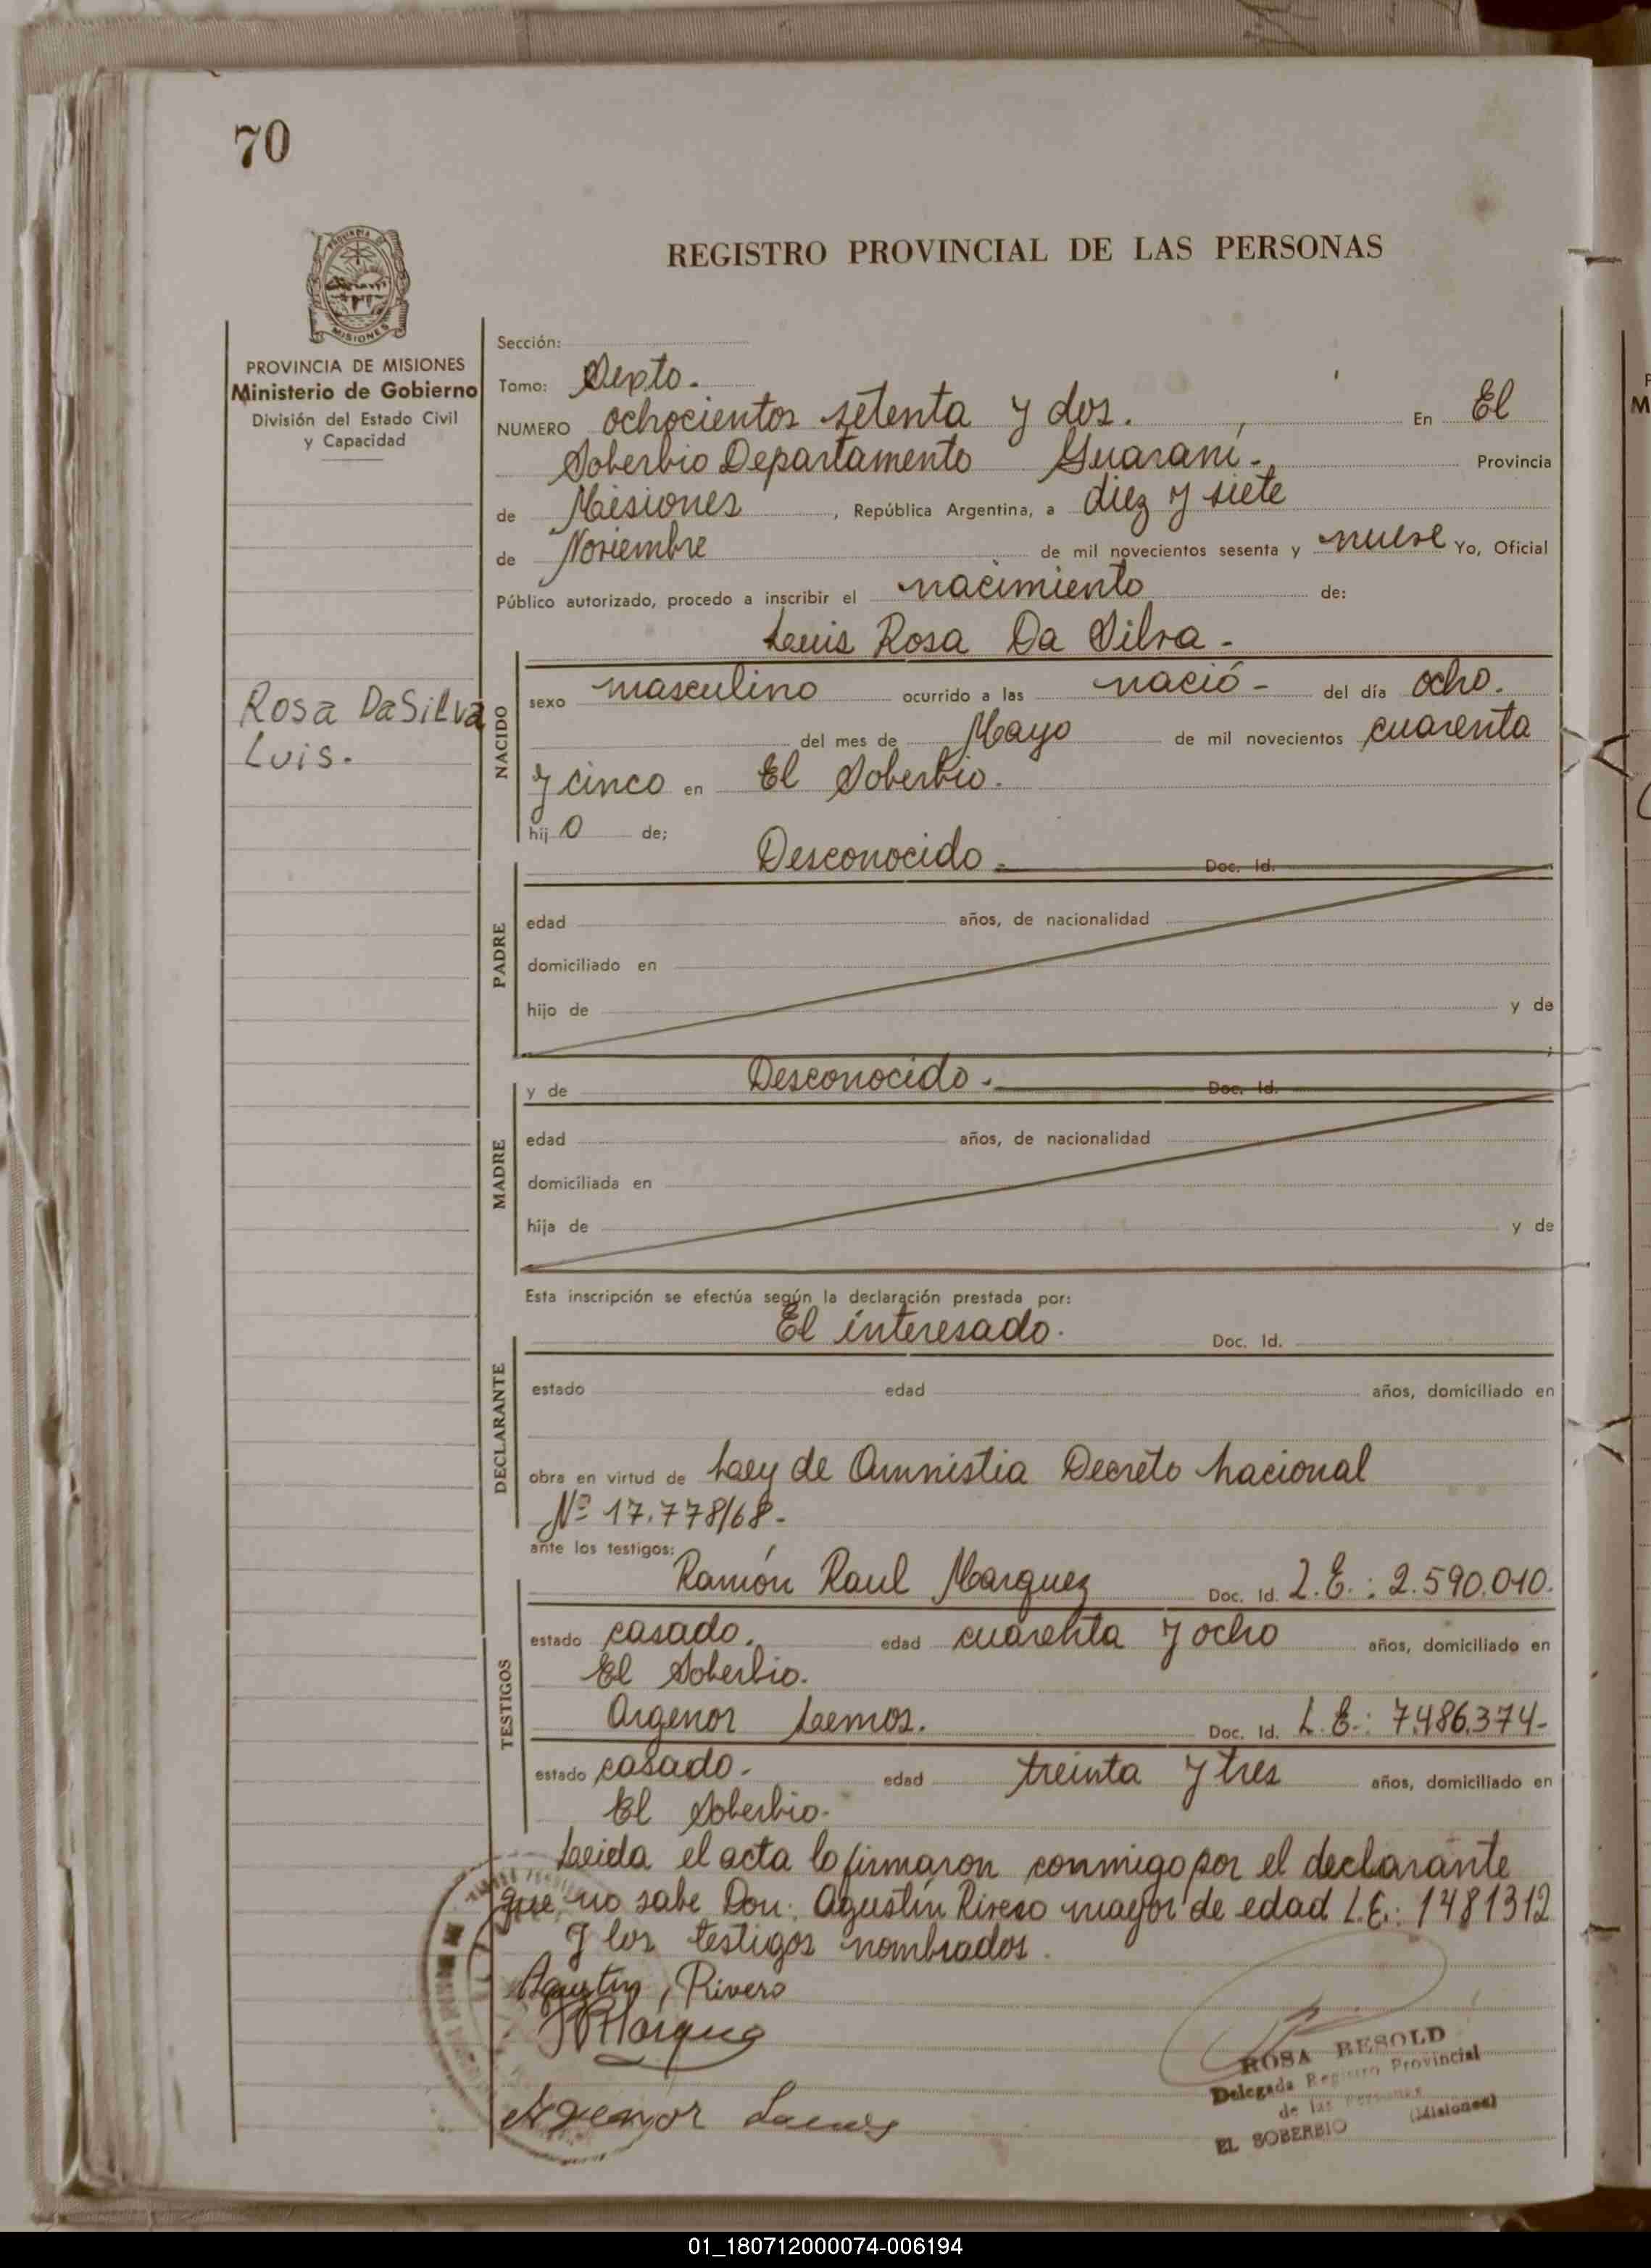 70
PROVINCIA DE
MISIONES
PROVINCIA DE MISIONES
Ministerio de Gobierno
División del Estado Civil
y Capacidad
REGISTRO PROVINCIAL DE LAS PERSONAS
Sección:
Tomo: Sexto.
NUMERO ochocientos setenta y dos. En El
Soberbio Departamento Guaraní. Provincia
de Misiones, República Argentina, a diez y siete
de Noviembre de mil novecientos sesenta y nueve Yo, Oficial
Público autorizado, procedo a inscribir el nacimiento de:
Luis Rosa Da Silva -
Rosa DaSilva
Luis.
NACIDO
sexo masculino ocurrido a las nació - del día ocho.
del mes de Mayo de mil novecientos cuarenta
y cinco en El Soberbio.
hijo de;
PADRE
Desconocido - Doc. Id.
edad años, de nacionalidad
domiciliado en
hijo de y de
MADRE
y de Desconocido. Doc. Id.
edad años, de nacionalidad
domiciliada en
hija de y de
Esta inscripción se efectúa según la declaración prestada por:
DECLARANTE
El interesado. Doc. Id.
estado edad años, domiciliado en
obra en virtud de Ley de Amnistia Decreto Nacional
Nº 17.778/68-
ante los testigos:
TESTIGOS
Ramón Raul Marquez Doc. Id. L.E.: 2.590.010.
estado casado. edad cuarenta y ocho años, domiciliado en
El Soberbio.
Argenor Lemos. Doc. Id. L.E.: 7.486.374-
estado casado. edad treinta y tres años, domiciliado en
El Soberbio.
Leida el acta lo firmaron conmigo por el declarante
que no sabe Don: Agustín Rivero mayor de edad L.E.: 1481312
y los testigos nombrados.
Agustin Rivero
RRMarquez
Argenor Lemos
ROSA BESOLD
Delegada Registro Provincial
de las Personas
EL SOBERBIO (Misiones)
01_180712000074-006194